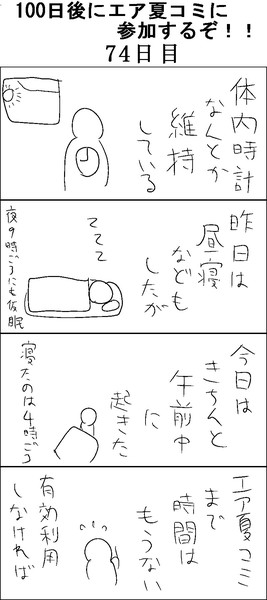 100日後にエア夏コミに
参加するぞ!!
74日目
体内時計
なんとか
維持
している
昨日は
昼寝
なども
したが
ててて
夜9時ごろにも仮眠
今日は
きちんと
午前中
に
起きた
寝たのは4時ごろ
エア夏コミ
まで
時間は
もうない
有効利用
しなければ